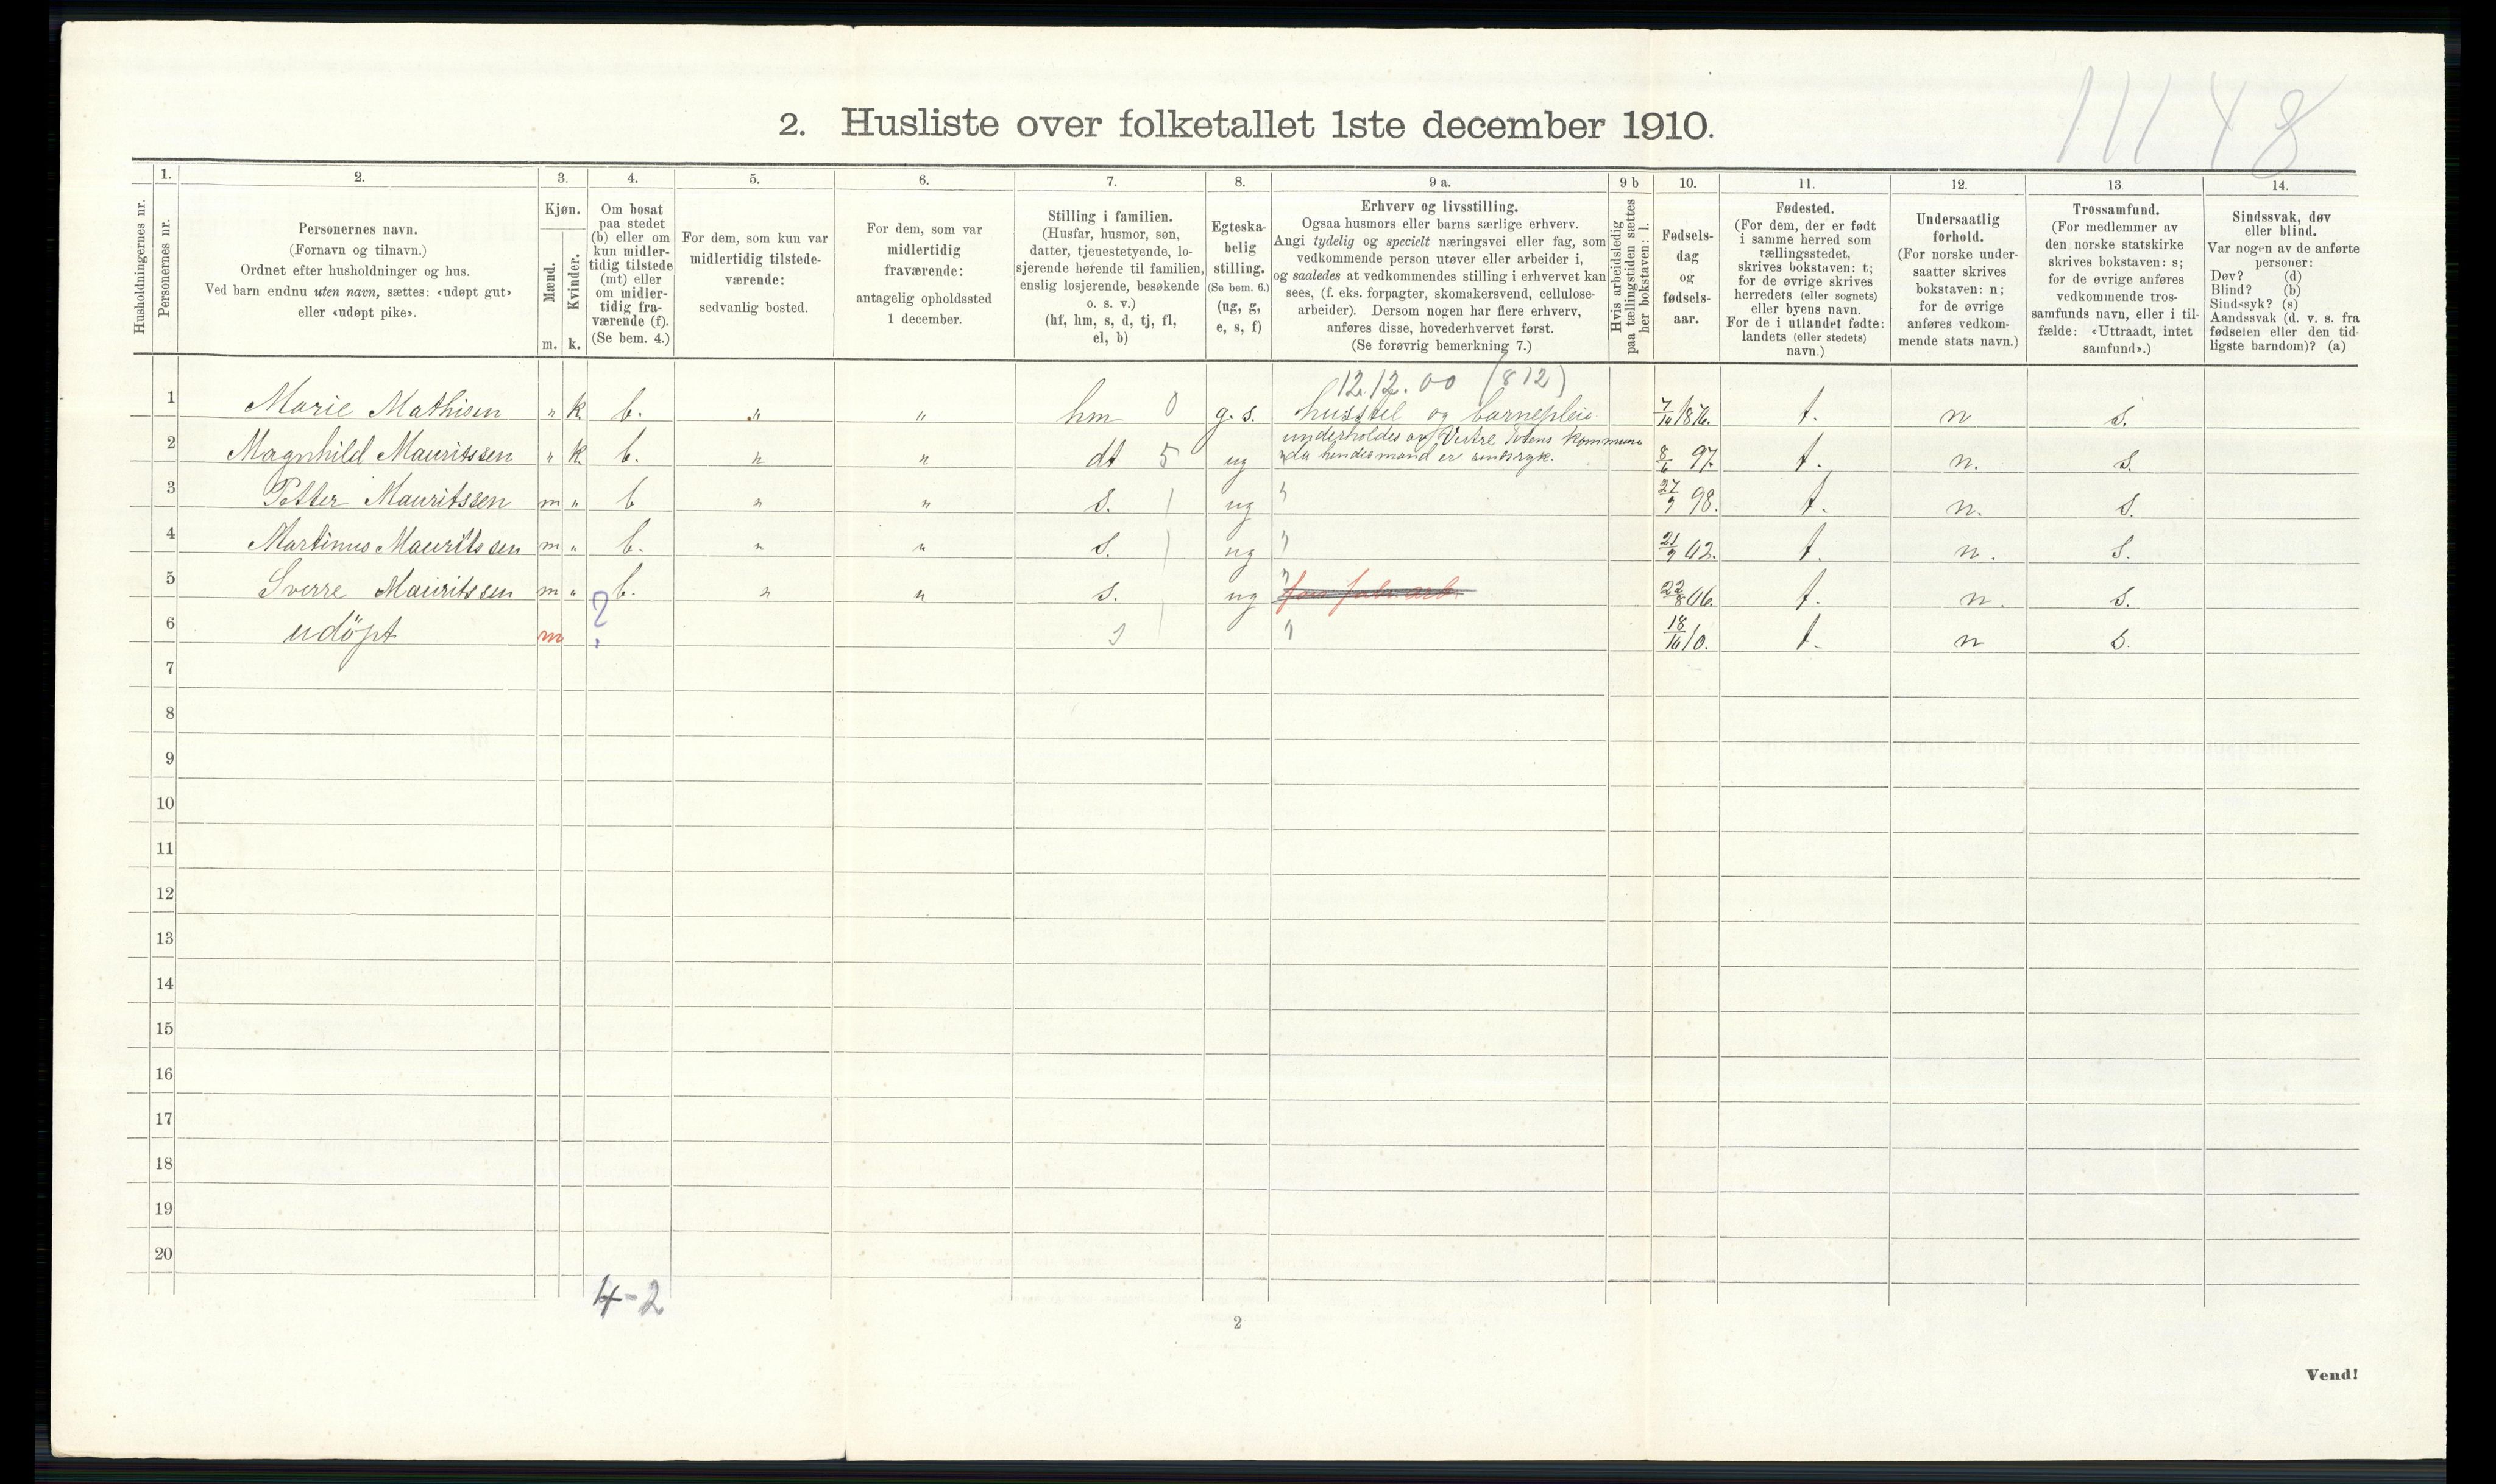 11148
2. Husliste over folketallet 1ste december 1910.
Husholdningernes nr.
1.
Personernes nr.
2.
Personernes navn.
(Fornavn og tilnavn.)
Ordnet efter husholdninger og hus.
Ved barn endnu uten navn, sættes: «udøpt gut»
eller «udøpt pike».
3.
Kjøn.
Mænd.
Kvinder.
m. k.
4.
Om bosat
paa stedet
(b) eller om
kun midler-
tidig tilstede
(mt) eller
om midler-
tidig fra-
værende (f).
(Se bem. 4.)
5.
For dem, som kun var
midlertidig tilstede-
værende:
sedvanlig bosted.
6.
For dem, som var
midlertidig
fraværende:
antagelig opholdssted
1 december.
7.
Stilling i familien.
(Husfar, husmor, søn,
datter, tjenestetyende, lo-
sjerende hørende til familien,
enslig losjerende, besøkende
o. s. v.)
(hf, hm, s, d, tj, fl,
el, b)
8.
Egteska-
belig
stilling.
(Se bem. 6.)
(ug, g,
e, s, f)
9 a.
Erhverv og livsstilling.
Ogsaa husmors eller barns særlige erhverv.
Angi tydelig og specielt næringsvei eller fag, som
vedkommende person utøver eller arbeider i,
og saaledes at vedkommendes stilling i erhvervet kan
sees, (f. eks. forpagter, skomakersvend, cellulose-
arbeider). Dersom nogen har flere erhverv,
anføres disse, hovederhvervet først.
(Se forøvrig bemerkning 7.)
9 b
Hvis arbeidsledig
paa tællingstiden sættes
her bokstaven: l.
10.
Fødsels-
dag
og
fødsels-
aar.
11.
Fødested.
(For dem, der er født
i samme herred som
tællingsstedet,
skrives bokstaven: t;
for de øvrige skrives
herredets (eller sognets)
eller byens navn.
For de i utlandet fødte:
landets (eller stedets)
navn.)
12.
Undersaatlig
forhold.
(For norske under-
saatter skrives
bokstaven: n;
for de øvrige
anføres vedkom-
mende stats navn.)
13
Trossamfund.
(For medlemmer av
den norske statskirke
skrives bokstaven: s;
for de øvrige anføres
vedkommende tros-
samfunds navn, eller i til-
fælde: «Uttraadt, intet
samfund».)
14.
Sindssvak, døv
eller blind.
Var nogen av de anførte
personer:
Døv? (d)
Blind? (b)
Sindssyk? (s)
Aandssvak (d. v. s. fra
fødselen eller den tid-
ligste barndom)? (a)
12.12.00 (812)
1 Marie Mathisen " k. b. " " hm 0 g. s. husstel og barnepleie 7/10 1876. t. n s.
underholdes av Vestre Totens kommune
2 Magnhild Mauritssen " k. b. " " dt 5 ug da hendes mand er sindssyk. 8/6 97. t. n. s.
3 Petter Mauritssen m " b " " s. 1 ug " 27/9 98. t. n. s.
4 Martinus Mauritssen m " b. " " s. 1 ug " 21/9 02. t. n. s.
5 Sverre Mauritssen m " b. " " s. ug " 22/8 06. t. n. s.
6 udöpt m ? s " 18/10 10. t. n s.
7
8
9
10
11
12
13
14
15
16
17
18
19
20
4-2
2
Vend!